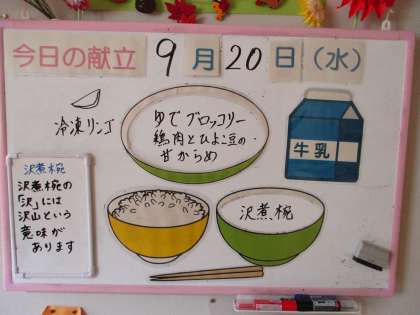 今日の献立 9月20日(水)
冷凍リンゴ
ゆでブロッコリー
鶏肉とひよこ豆の
甘からめ
牛乳
沢煮椀
沢煮椀の
「沢」には
沢山という
意味が
あります
沢煮椀